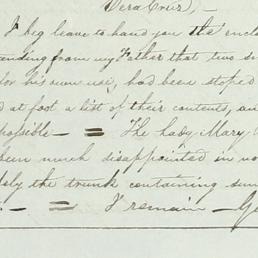 Vera Cruz, —
I beg leave to hand you the enclo
ending from my Father that two s
for his own use, had been stoped
d at foot a list of their contents, an
possible — = The lady Mary
been much disappointed in no
ly the trunk containing sun
— = I remain — Ge